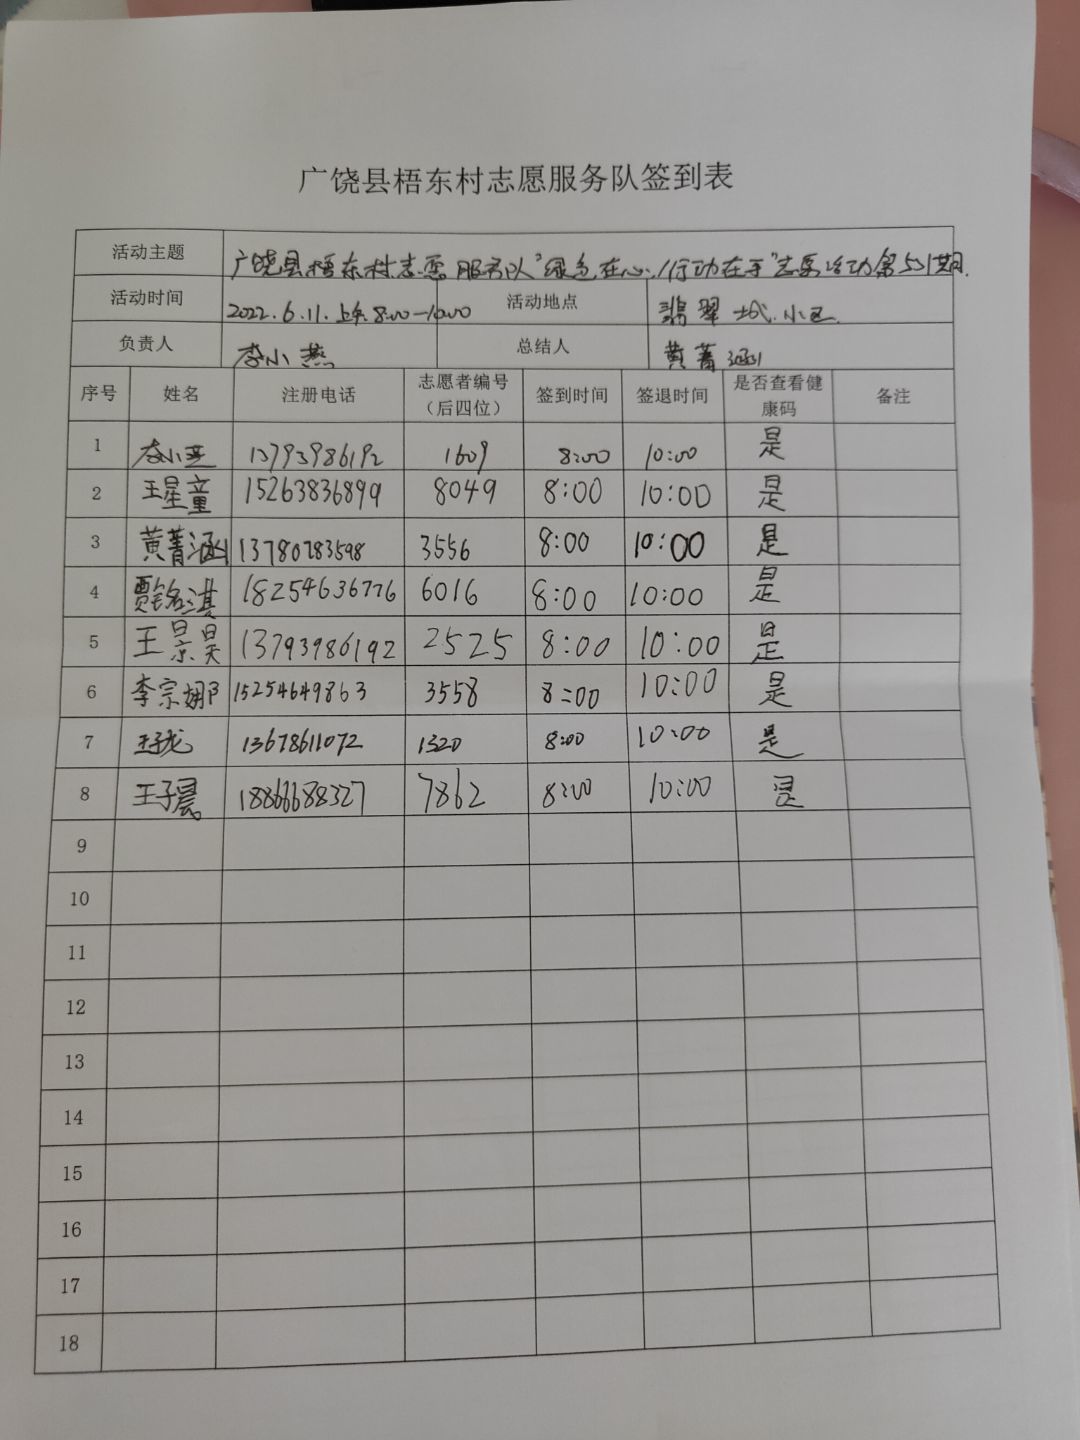 广饶县梧东村志愿服务队签到表
活动主题 广饶县梧东村志愿服务队"绿色在心,行动在手"志愿活动第531期
活动时间 2022.6.11.上午8:00-10:00 活动地点 翡翠城小区
负责人 李小燕 总结人 黄菁涵
序号 姓名 注册电话 志愿者编号（后四位） 签到时间 签退时间 是否查看健康码 备注
1 李小燕 13793986192 1609 8:00 10:00 是
2 王星童 15263836899 8049 8:00 10:00 是
3 黄菁涵 13780783598 3556 8:00 10:00 是
4 贾铭淇 18254636776 6016 8:00 10:00 是
5 王景昊 13793986192 2525 8:00 10:00 是
6 李宗娜 15254649863 3558 8:00 10:00 是
7 王子龙 13678611072 1320 8:00 10:00 是
8 王子晨 18866688327 7862 8:00 10:00 是
9
10
11
12
13
14
15
16
17
18